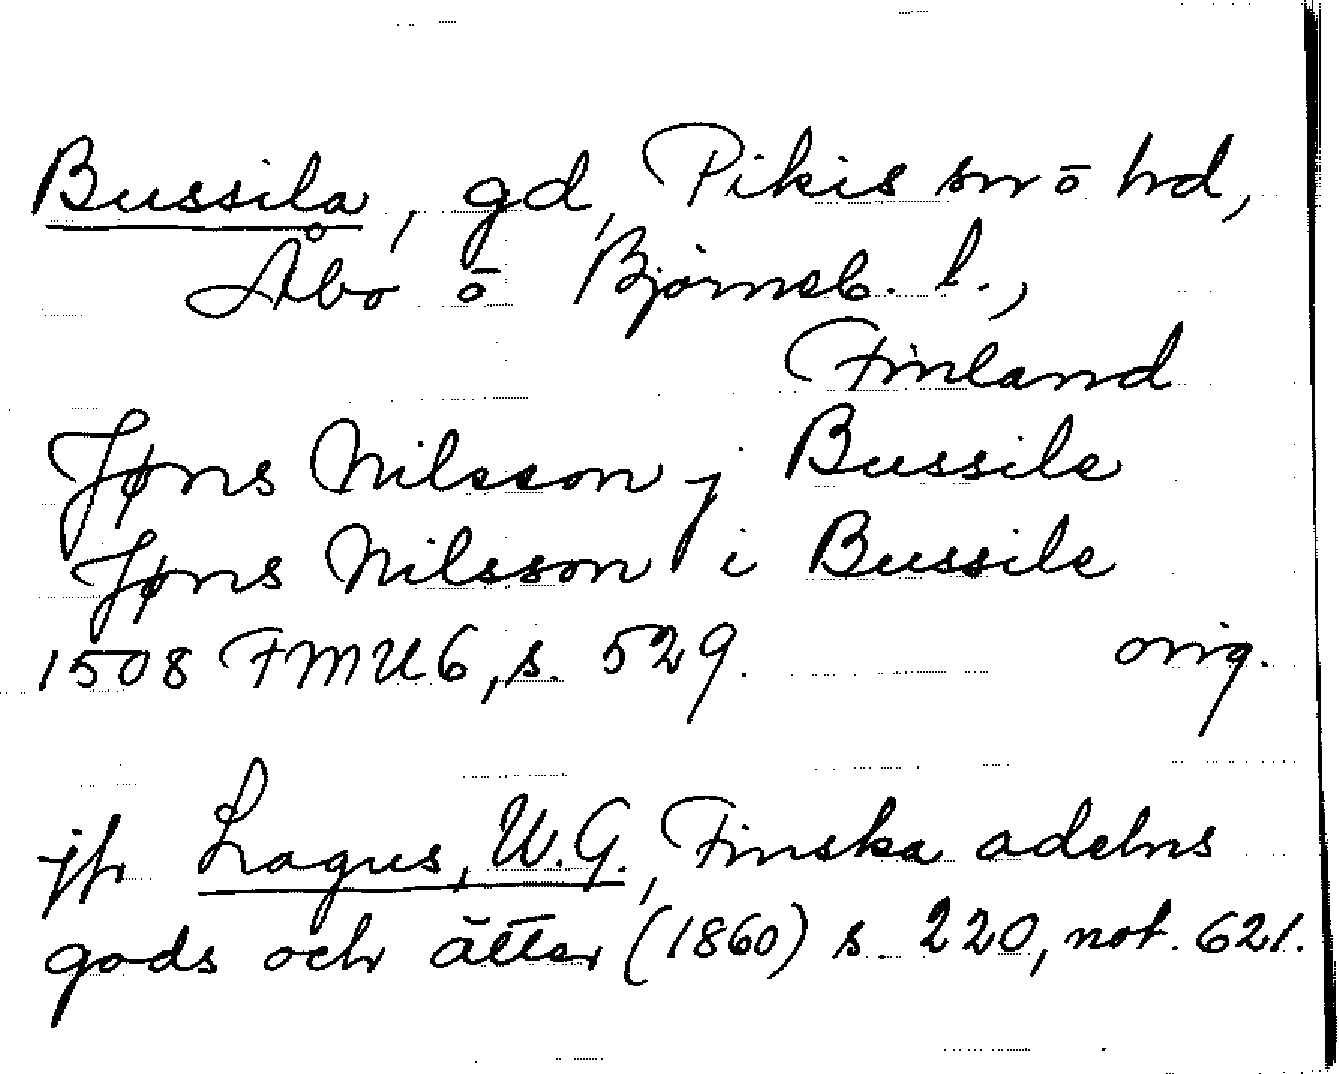 Bussila, gd, Pikis sn ō hd,
Åbo ō Björneb. l.,
Finland
Jøns Nilsson j Bussile
Jøns Nilsson i Bussile
1508 FMU6, s. 529. orig.
jfr Lagus, W.G., Finska adelns
gods och ätter (1860) s. 220, not. 621.